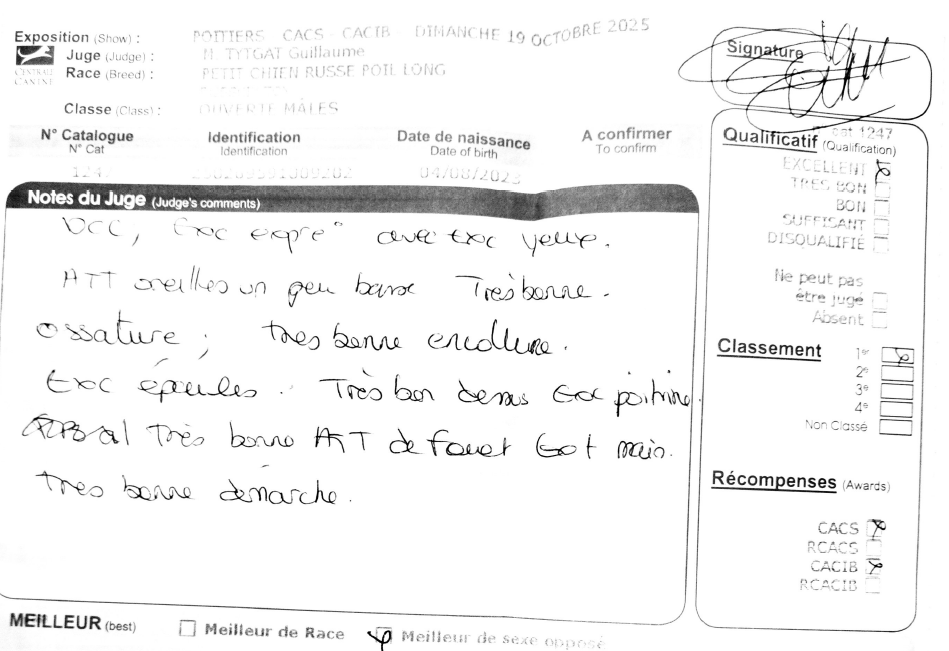 Exposition (Show) : POITIERS CACS - CACIB - DIMANCHE 19 OCTOBRE 2025
Juge (Judge) : M. TYTGAT Guillaume
Race (Breed) : PETIT CHIEN RUSSE POIL LONG
CENTRALE CANINE
Classe (Class) : OUVERTE MÂLES
N° Catalogue Identification Date de naissance A confirmer
N° Cat Identification Date of birth To confirm
1247 04/08/2023
Notes du Juge (Judge's comments)
DCC, Exc expre° avec exc yeux.
ATT oreilles un peu basse Très bonne.
ossature ; très bonne encolure.
Exc épaules. Très bon dessus Exc poitrine.
Très bonne ATT de fouet Got main.
très bonne démarche.
Signature
cat 1247
Qualificatif (Qualification)
EXCELLENT
TRES BON
BON
SUFFISANT
DISQUALIFIÉ
Ne peut pas
être jugé
Absent
Classement 1er
2e
3e
4e
Non Classé
Récompenses (Awards)
CACS
RCACS
CACIB
RCACIB
MEILLEUR (best) Meilleur de Race Meilleur de sexe opposé